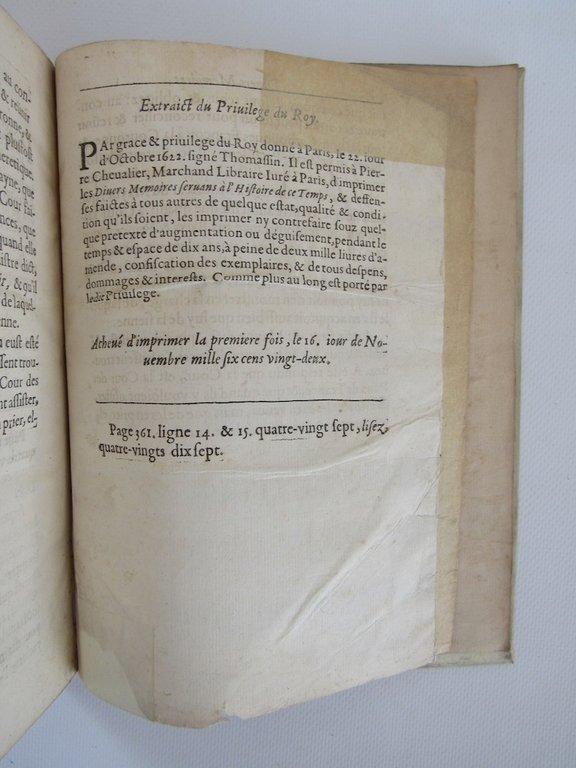 au con-
& retenir
ronne, &
plustost
eretique.
ayne, que
Cour fai-
nces, que
quand elle
istre dict,
ir, & qu'il
de laquel-
enne.
eust esté
Tent trou-
Cour des
nt assister,
prier, el-
Extraict du Priuilege du Roy.
PAr grace & priuilege du Roy donné à Paris, le 22. iour
d'Octobre 1622. signé Thomassin. Il est permis à Pier-
re Cheualier, Marchand Libraire Iuré à Paris, d'imprimer
les Diuers Memoires seruans à l'Histoire de ce Temps, & deffen-
ses faictes à tous autres de quelque estat, qualité & condi-
tion qu'ils soient, les imprimer ny contrefaire souz quel-
que pretexte d'augmentation ou déguisement, pendant le
temps & espace de dix ans, à peine de deux mille liures d'a-
mende, confiscation des exemplaires, & de tous despens,
dommages & interests. Comme plus au long est porté par
ledit Priuilege.
Acheué d'imprimer la premiere fois, le 16. iour de No-
uembre mille six cens vingt-deux.
Page 361. ligne 14. & 15. quatre-vingt sept, lisez,
quatre-vingts dix sept.